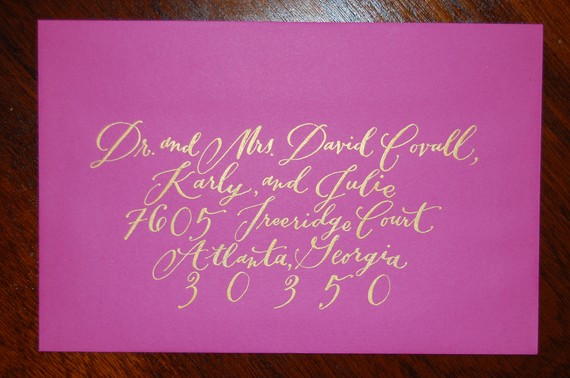 Dr. and Mrs. David Covall,
Karly, and Julie
7605 Treeridge Court
Atlanta, Georgia
30350